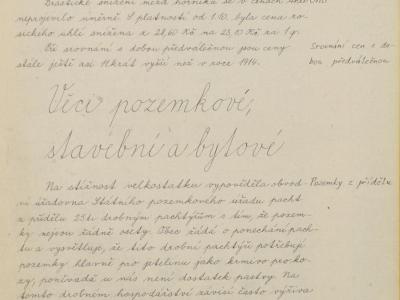 Drastické snížení mezd horníka se v cenách uhlí
neprojevilo úměrně. S platností od 1./10. byla cena ro-
sického uhlí snížena z 28,60 Kč na 23,10 Kč za 1 q.
Při srovnání s dobou předválečnou jsou ceny
stále ještě asi 11krát vyšší než v roce 1914.
Srovnání cen s do-
bou předválečnou
Věci pozemkové,
stavební a bytové
Na stížnost velkostatku vypověděla obvod-
ní úřadovna Státního pozemkového úřadu pacht
z přídělu 25ti drobným pachtýřům s tím, že pozem-
ky nejsou řádně osety. Obec žádá o ponechání pach-
tu a vysvětluje, že tito drobní pachtýři potřebují
pozemky hlavně pro jetelinu jako krmivo pro ko-
zy, poněvadž u nás není dostatek pastvy. Na
tomto drobném hospodářství závisí často výživa
Pozemky z přídělu